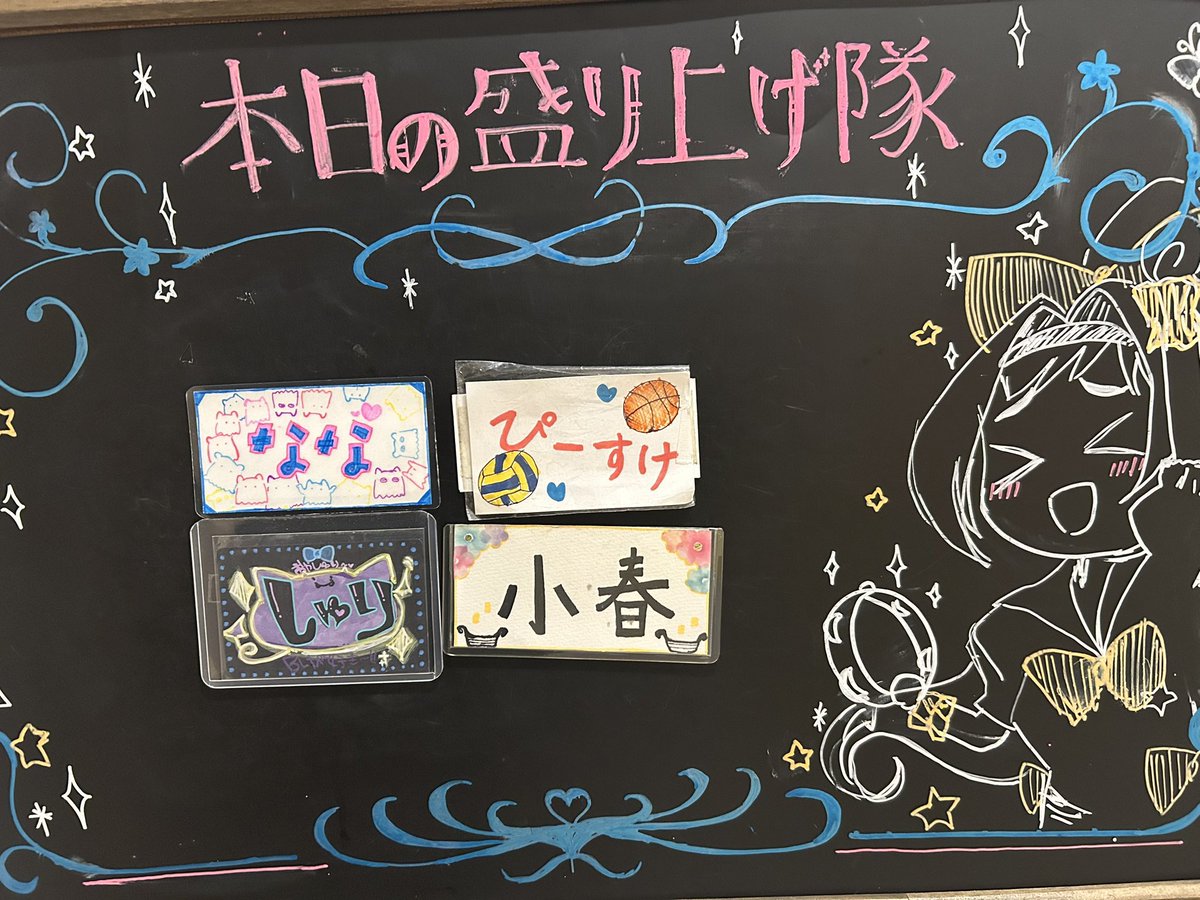 本日の盛り上げ隊
なな
ぴーすけ
しゅり
小春